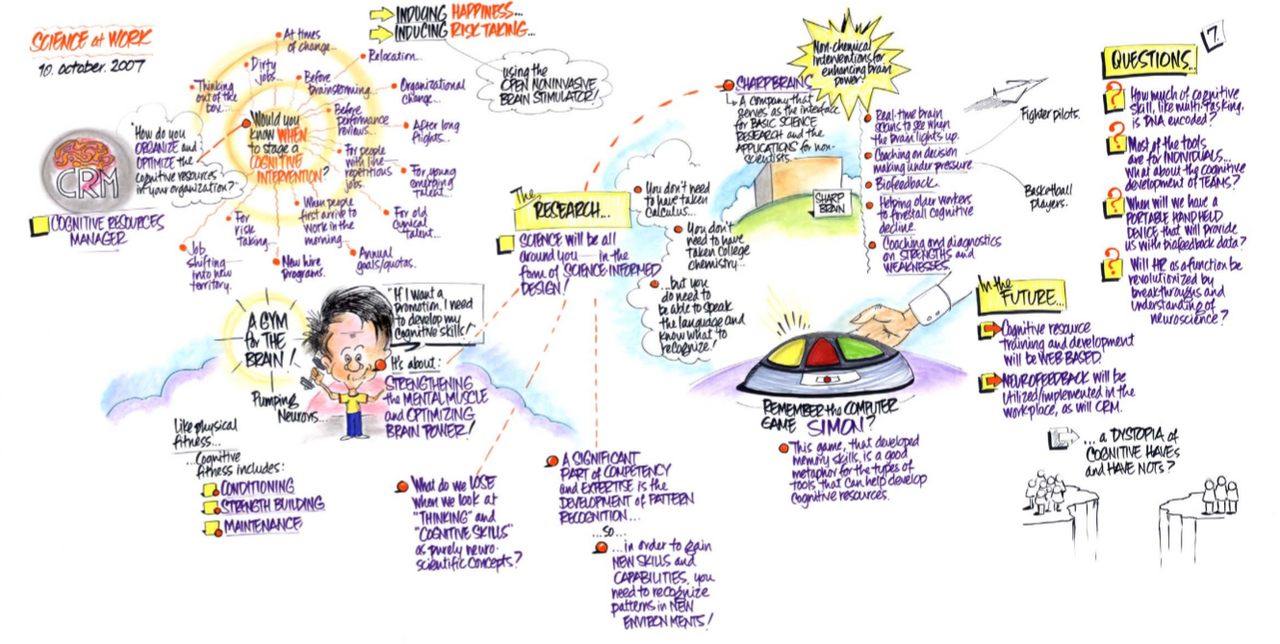 SCIENCE at WORK
10. october. 2007
"How do you
ORGANIZE and
OPTIMIZE the
cognitive resources
in your organization?"
CRM
COGNITIVE RESOURCES
MANAGER
Would you
know WHEN
to stage a
COGNITIVE
INTERVENTION?
At times
of change...
Dirty
jobs...
Thinking
out of the
box...
Before
brainstorming...
Relocation...
Organizational
change...
Before
performance
reviews...
After long
flights...
For people
with like
repetitious
jobs.
For young
emerging
talent...
When people
first arrive to
work in the
morning...
For old
cynical
talent...
Annual
goals/quotas.
New hire
programs.
For
risk
taking...
Job
shifting
into new
territory.
INDUCING HAPPINESS...
INDUCING RISK TAKING...
using the
OPEN NONINVASIVE
BRAIN STIMULATOR!
A GYM
for THE
BRAIN!
Pumping
Neurons...
"If I want a
promotion, I need
to develop my
cognitive skills!"
It's about:
STRENGTHENING
the MENTAL MUSCLE
and OPTIMIZING
BRAIN POWER!
Like physical
fitness...
...Cognitive
fitness includes:
CONDITIONING
STRENGTH BUILDING
MAINTENANCE
The
RESEARCH...
SCIENCE will be all
around you — in the
form of SCIENCE-INFORMED
DESIGN!
You don't need
to have taken
Calculus...
You don't
need to have
taken college
chemistry...
...but you
do need to
be able to speak
the language and
know what to
recognize!
What do we LOSE
when we look at
"THINKING" and
"COGNITIVE SKILLS"
as purely neuro-
scientific concepts?
A SIGNIFICANT
PART of COMPETENCY
and EXPERTISE is the
DEVELOPMENT of PATTERN
RECOGNITION...
...so...
...in order to gain
NEW SKILLS and
CAPABILITIES, you
need to recognize
patterns in NEW
ENVIRONMENTS!
SHARPBRAINS
A company that
serves as the interface
for BASIC SCIENCE
RESEARCH and the
APPLICATIONS for non-
scientists.
SHARP
BRAIN
Non-chemical
Interventions for
enhancing brain
power!
Real-time brain
scans to see when
the brain lights up.
Coaching on decision
making under pressure
Biofeedback.
Helping older workers
to forestall cognitive
decline.
Coaching and diagnostics
on STRENGTHS and
WEAKNESSES.
Fighter pilots.
Basketball
players.
REMEMBER the COMPUTER
GAME SIMON?
This game, that developed
memory skills, is a good
metaphor for the types of
tools that can help develop
cognitive resources.
In the
FUTURE...
Cognitive resource
training and development
will be WEB BASED.
NEUROFEEDBACK will be
utilized/implemented in the
workplace, as will CRM.
...a DYSTOPIA of
COGNITIVE HAVES
and HAVE NOTS?
7.
QUESTIONS...
How much of cognitive
skill, like multi-tasking,
is DNA encoded?
Most of the tools
are for INDIVIDUALS...
what about the cognitive
development of TEAMS?
When will we have a
PORTABLE HANDHELD
DEVICE that will provide
us with biofeedback data?
Will HR as a function be
revolutionized by
breakthroughs and
understanding of
neuroscience?